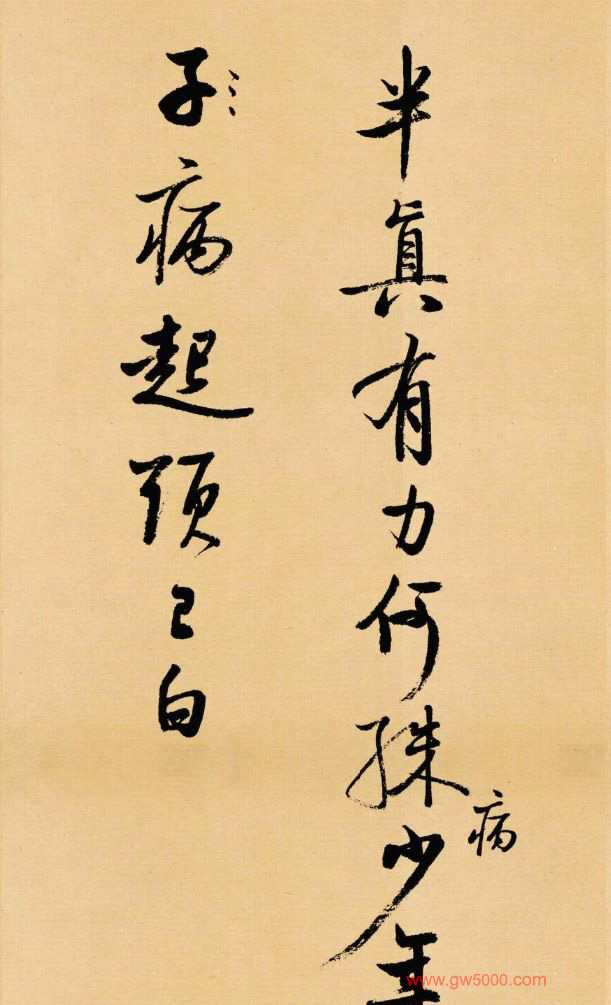 半眞有力何殊病少年
子病起須已白
www.gw5000.com